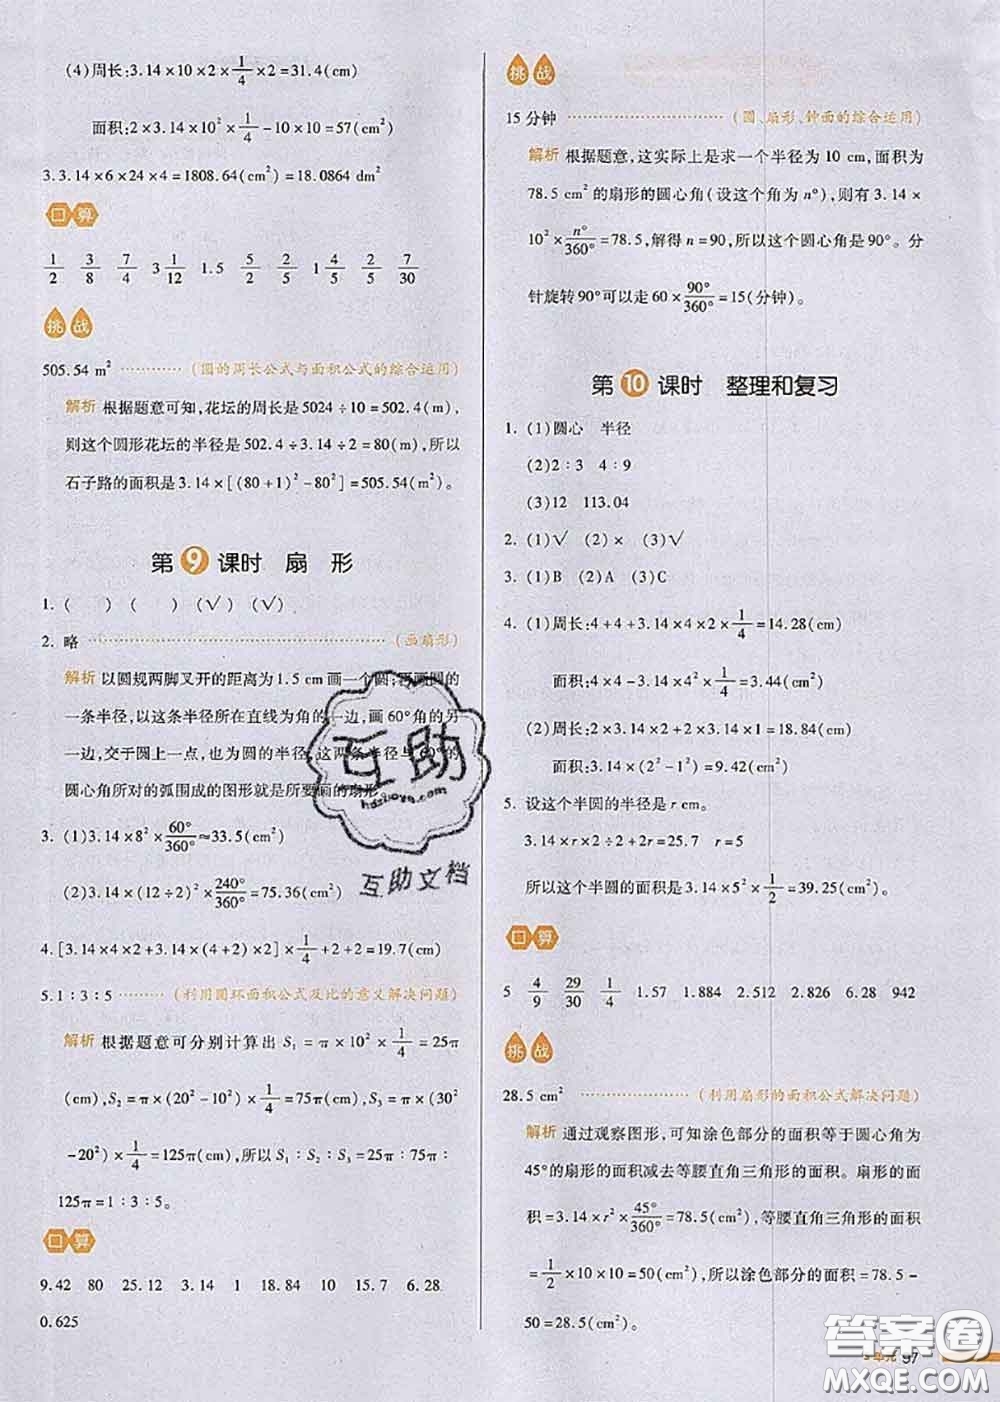 (4)周长:3.14×10×2×1/4×2=31.4(cm)
面积:2×3.14×10²×1/4-10×10=57(cm²)
3.3.14×6×24×4=1808.64(cm²)=18.0864 dm²
口算
1/2 3/8 7/4 3 1/12 1.5 5/2 2/5 1 4/5 2/5 7/30
挑战
505.54 m² (圆的周长公式与面积公式的综合运用)
解析 根据题意可知,花坛的周长是5024÷10=502.4(m),
则这个圆形花坛的半径是502.4÷3.14÷2=80(m),所以
石子路的面积是3.14×[(80+1)²-80²]=505.54(m²)。
第9课时 扇 形
1.( ) ( ) (√) (√)
2. 略 (画扇形)
解析 以圆规两脚叉开的距离为1.5 cm画一个圆;再画圆的
一条半径,以这条半径所在直线为角的一边,画60°角的另
一边,交于圆上一点,也为圆的半径,这两条半径与60°的
圆心角所对的弧围成的图形就是所要画的扇形。
3. (1)3.14×8²×60°/360°≈33.5(cm²)
(2)3.14×(12÷2)²×240°/360°=75.36(cm²)
4.[3.14×4×2+3.14×(4+2)×2]×1/4+2+2=19.7(cm)
5.1∶3∶5 (利用圆环面积公式及比的意义解决问题)
解析 根据题意可分别计算出 S₁=π×10²×1/4=25π
(cm),S₂=π×(20²-10²)×1/4=75π(cm),S₃=π×(30²
-20²)×1/4=125π(cm),所以 S₁∶S₂∶S₃=25π∶75π∶
125π=1∶3∶5。
口算
9.42 80 25.12 3.14 1 18.84 10 15.7 6.28
0.625
挑战
15分钟 (圆、扇形、钟面的综合运用)
解析 根据题意,这实际上是求一个半径为10 cm,面积为
78.5 cm²的扇形的圆心角(设这个角为n°),则有3.14×
10²×n°/360°=78.5,解得n=90,所以这个圆心角是90°。分
针旋转90°可以走60×90°/360°=15(分钟)。
第10课时 整理和复习
1. (1)圆心 半径
(2)2∶3 4∶9
(3)12 113.04
2. (1)√ (2)× (3)√
3. (1)B (2)A (3)C
4. (1)周长:4+4+3.14×4×2×1/4=14.28(cm)
面积:4×4-3.14×4²×1/4=3.44(cm²)
(2)周长:2×3.14×2+2×3.14×1=18.84(cm)
面积:3.14×(2²-1²)=9.42(cm²)
5. 设这个半圆的半径是r cm。
3.14×r×2÷2+2r=25.7 r=5
所以这个半圆的面积是3.14×5²×1/2=39.25(cm²)。
口算
5 4/9 29/30 1/4 1.57 1.884 2.512 2.826 6.28 942
挑战
28.5 cm² (利用扇形的面积公式解决问题)
解析 通过观察图形,可知涂色部分的面积等于圆心角为
45°的扇形的面积减去等腰直角三角形的面积。扇形的面
积=3.14×r²×45°/360°=78.5(cm²),等腰直角三角形的面积
=1/2×10×10=50(cm²),所以涂色部分的面积=78.5-
50=28.5(cm²)。
互助
hdzuoye.com
互助文档
单元 97
答案圈
MXQE.COM